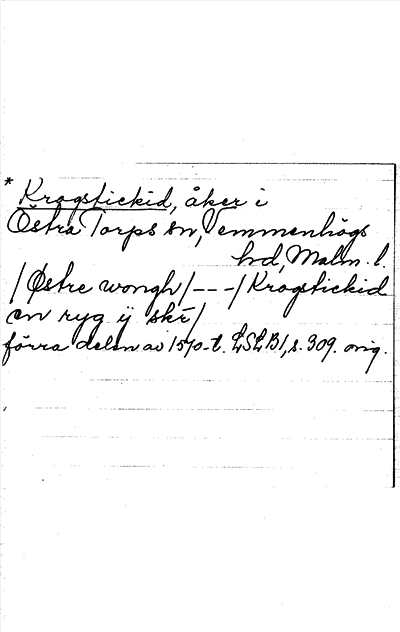 * Krogstickid, åker i
Östra Torps sn, Vemmenhögs
hd, Malm. l.
/ Østre wongh/ - - - / Krogstickid
en ryg ij skr/
förra delen av 1570-t. LSLB1, s. 309. orig.